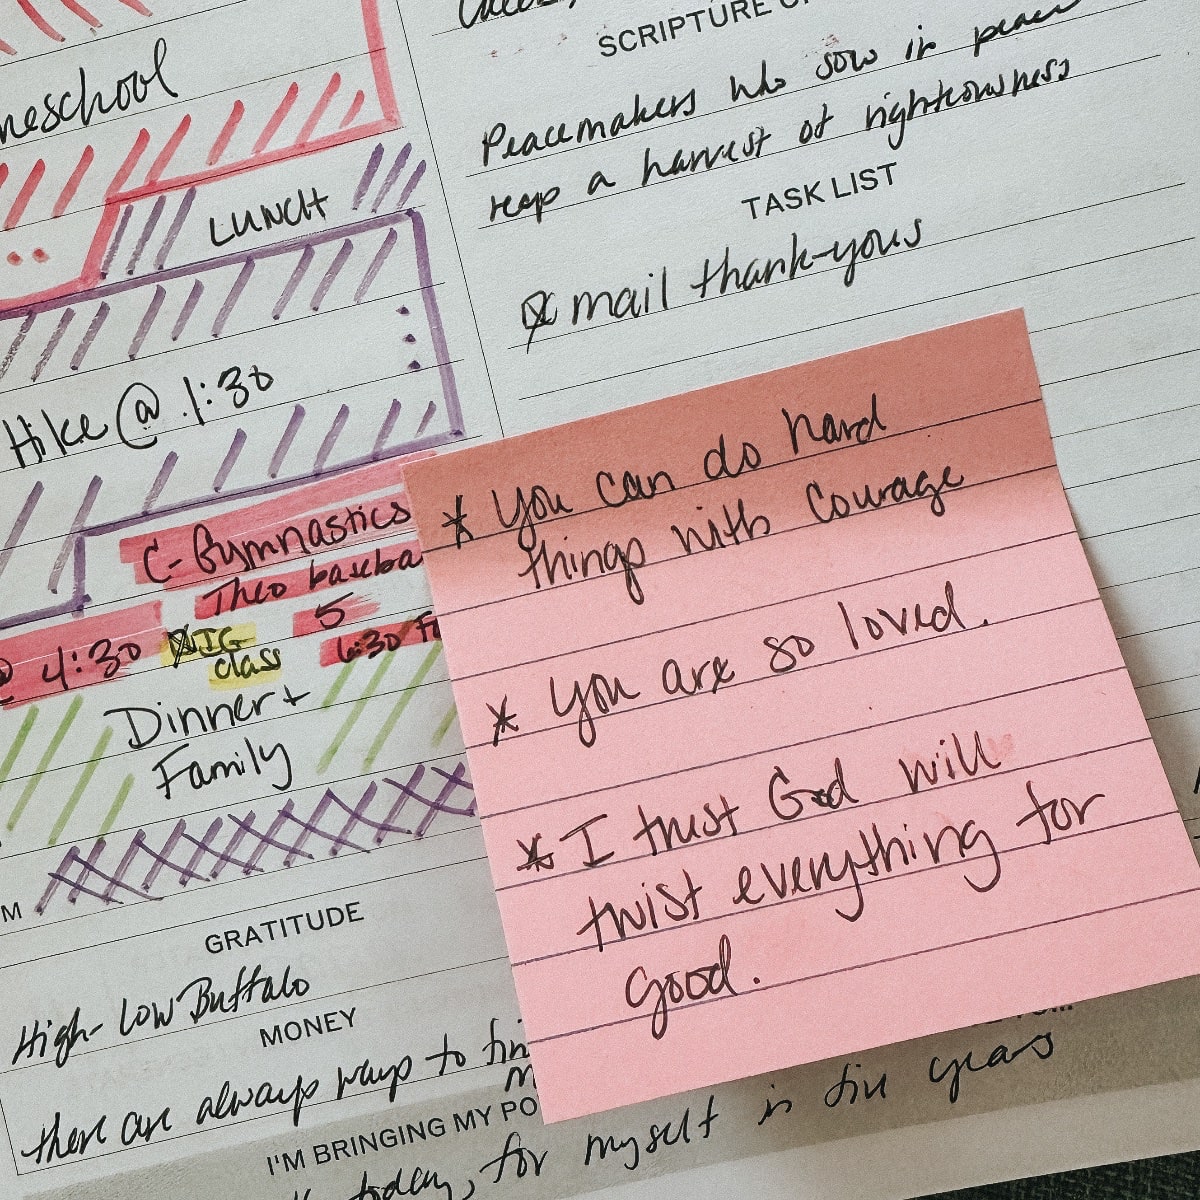 neschool
LUNCH
Hike @ 1:30
C-Gymnastics
Theo baseba
5
@ 4:30
IG
class
6:30
Dinner +
Family
M
GRATITUDE
High-Low Buffalo
MONEY
there are always ways to fin
I'M BRINGING MY PO
today, for myself in five years
SCRIPTURE O
Peacemakers who sow in peace
reap a harvest of righteousness
TASK LIST
mail thank-yous
* You can do hard
things with courage
* You are so loved.
* I trust God will
twist everything for
good.